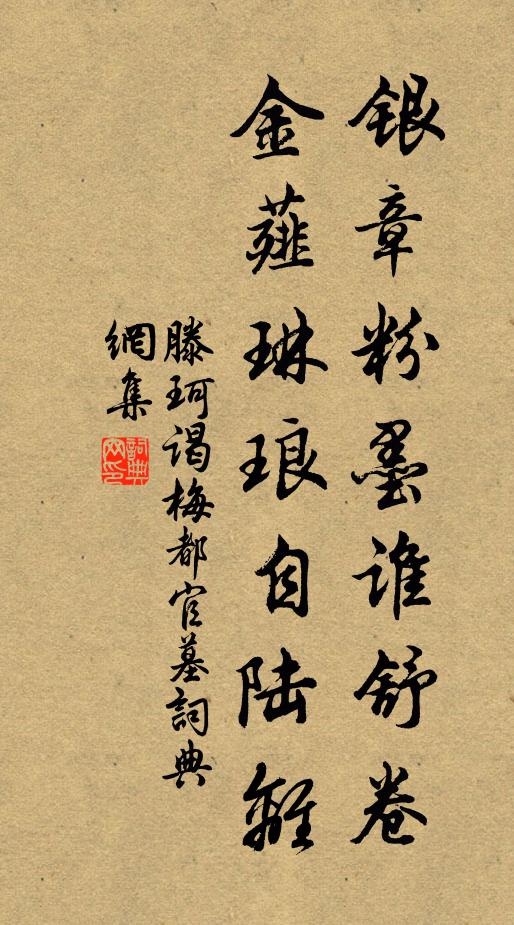 銀章粉墨誰舒卷
金薤琳琅自陆離
滕珂谒梅都官墓詞典
網集
詞典網印